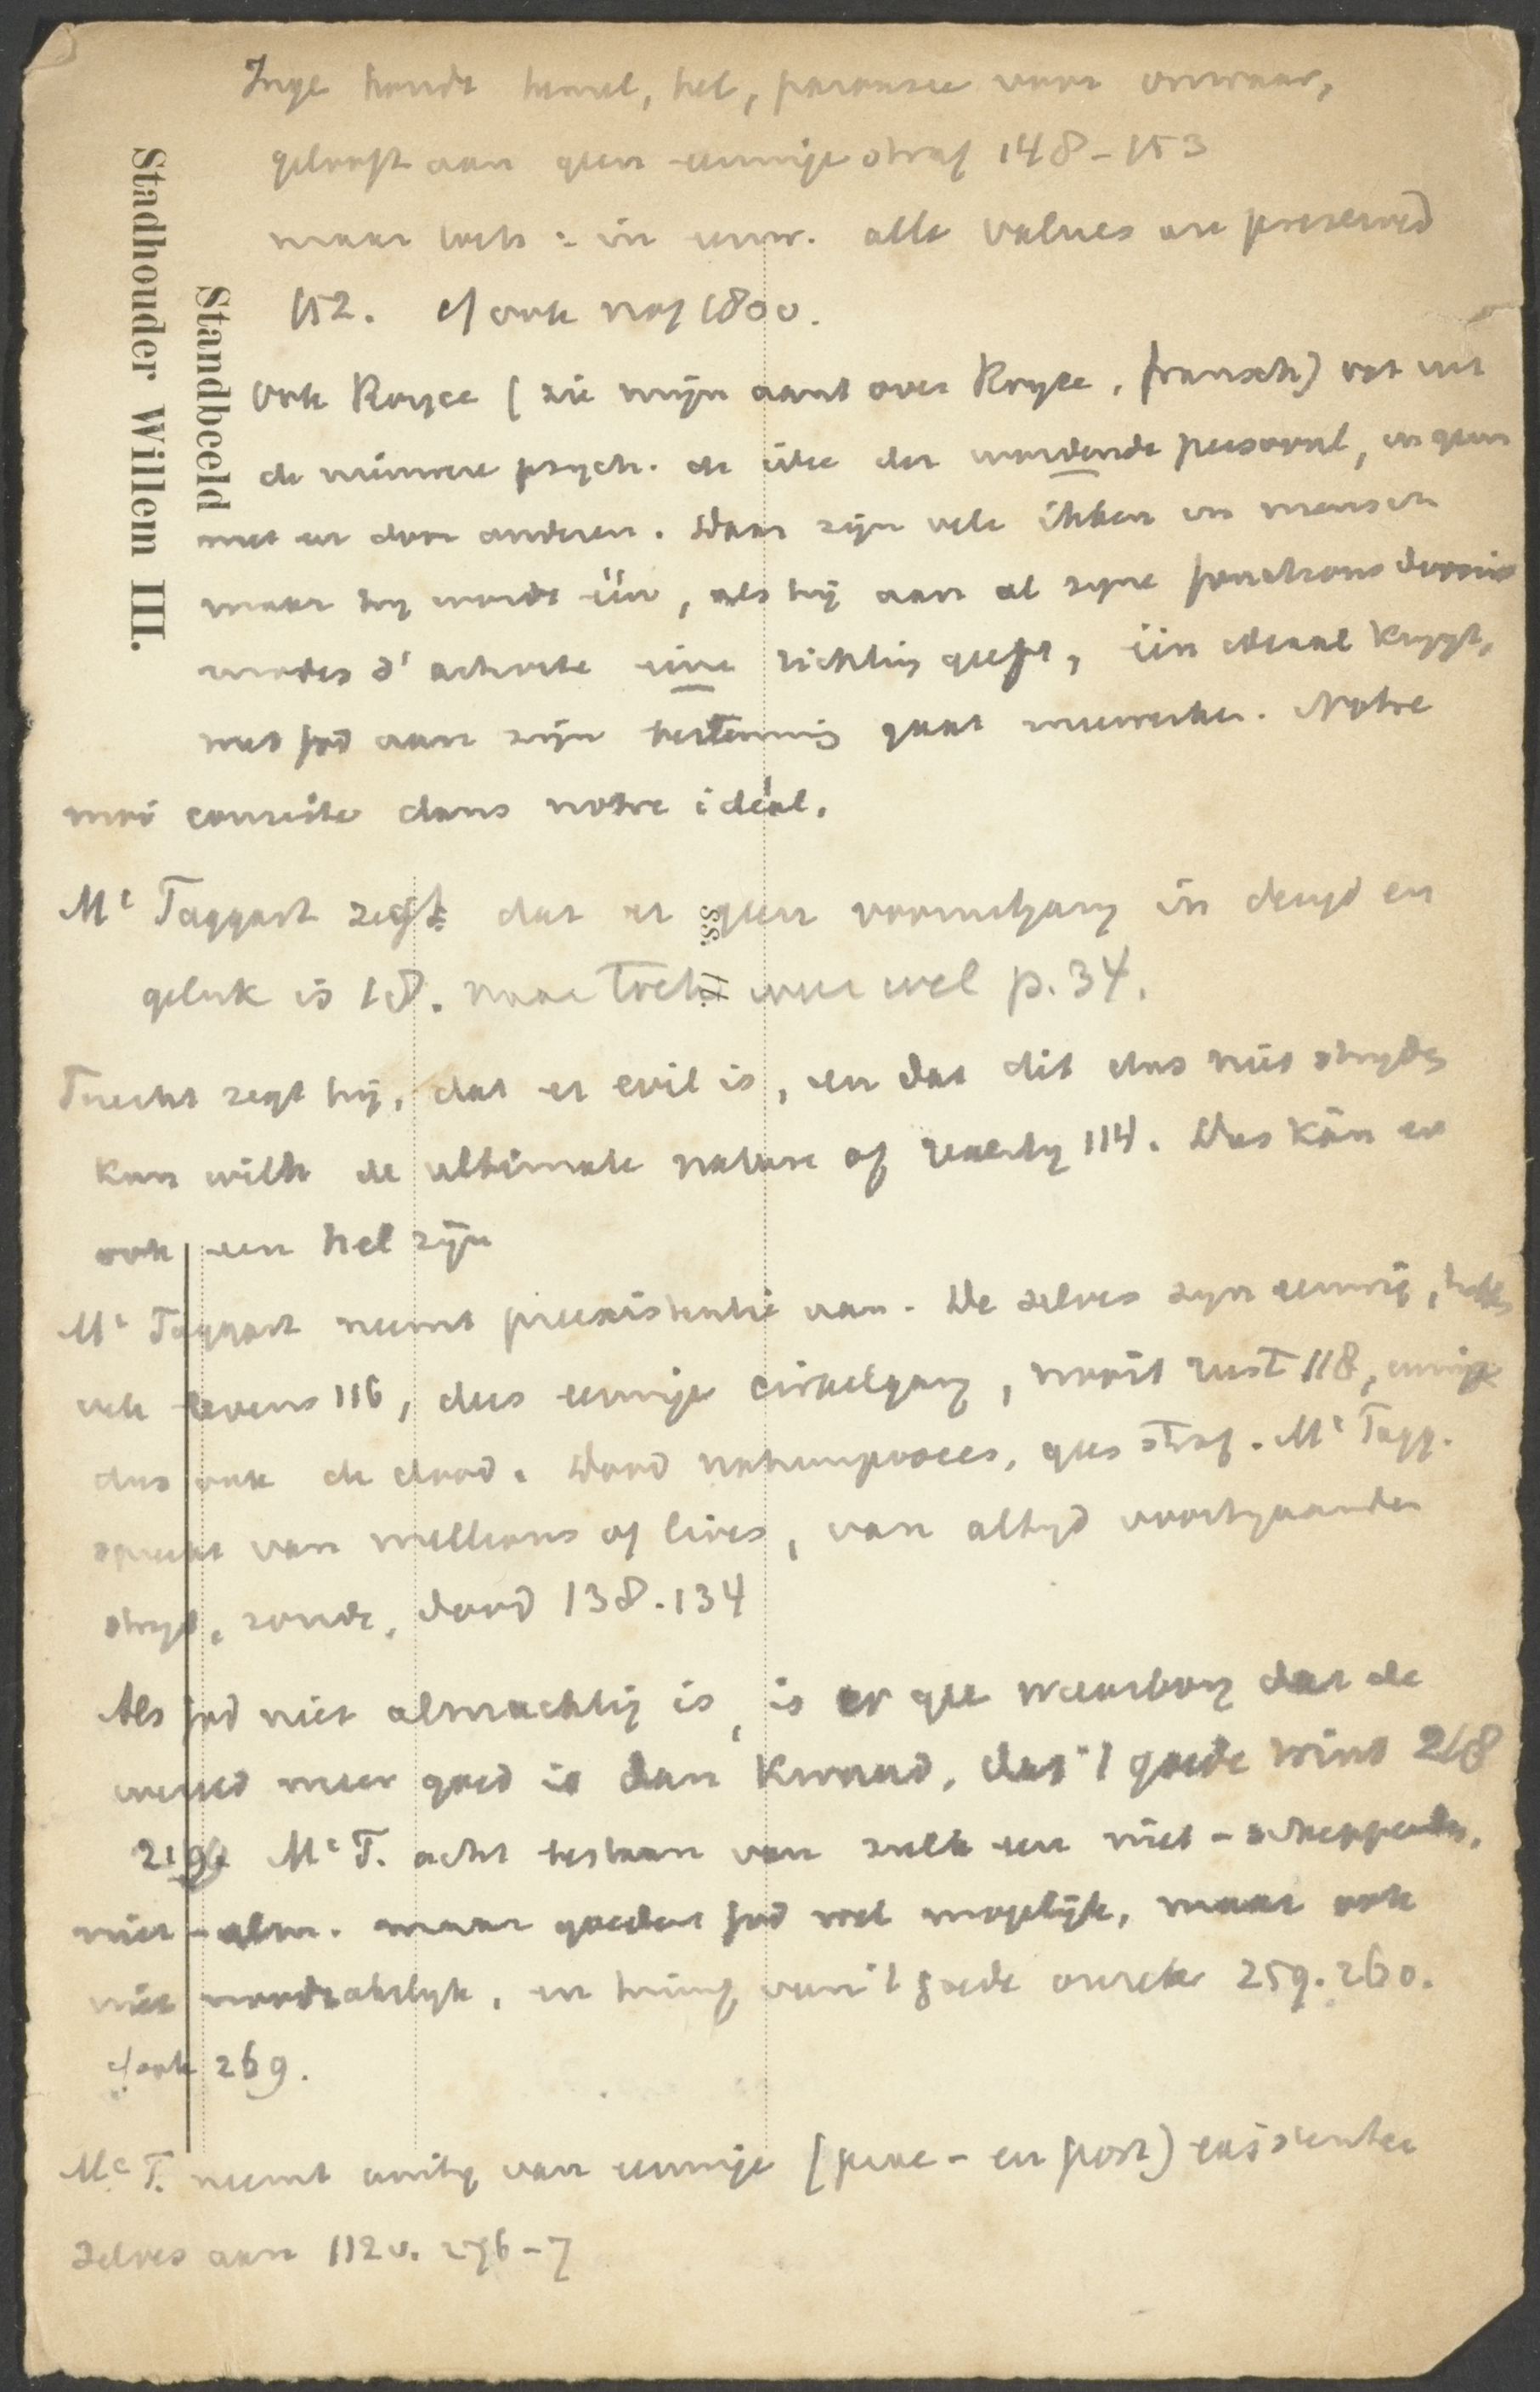 Inge houdt hemel, hel, parousie voor onwaar,
gelooft aan geen eeuwige straf 148-153
maar toch: in eeuw. alle values are preserved
152. cf ook nog 1800.
Ook Royce (zie mijn aant over Royce, fransch) vat uit
de nieuwere psych. de idee der wordende personal, en geen
met en door anderen. Daar zijn vele ikken in mensch
maar hij wordt één, als hij aan al zijne fonctions
modes d'activité eene richting geeft, één ideaal krijgt,
met God aan zijn bestemming gaat meewerken. Notre
moi consiste dans notre idéal.
Mc Taggart zegt dat er geen vooruitgang in deugd en
geluk is 18. maar toch weer wel p. 34.
Terecht zegt hij, dat er evil is, en dat dit dus niet strijdig
kan with de ultimate nature of reality 114. Dus kàn er
ook een hel zijn
Mc Taggart neemt preexistentie aan. De selves zijn eeuwig, hebben
vele levens 116, dus eeuwige cirkelgang, nooit rust 118, eeuwige
dus ook de dood. Dood natuurproces, geen straf. Mc Tagg.
spreekt van millions of lives, van altijd voortgaanden
strijd, zonde, dood 138.134
Als God niet almachtig is, is er gee waarborg dat de
wereld meer goed is dan kwaad, dat 't goede wint 218
219. Mc T. acht bestaan van zulk een niet-scheppenden,
niet-alm. maar goeden God wel mogelijk, maar ook
niet noodzakelijk, en van 't goede onzeker 259.260.
cf ook 269.
Mc T. neemt unity van eeuwige (prae- en post) existentie
selves aan 112v. 276-7
Standbeeld
Stadhouder Willem III.
ss.